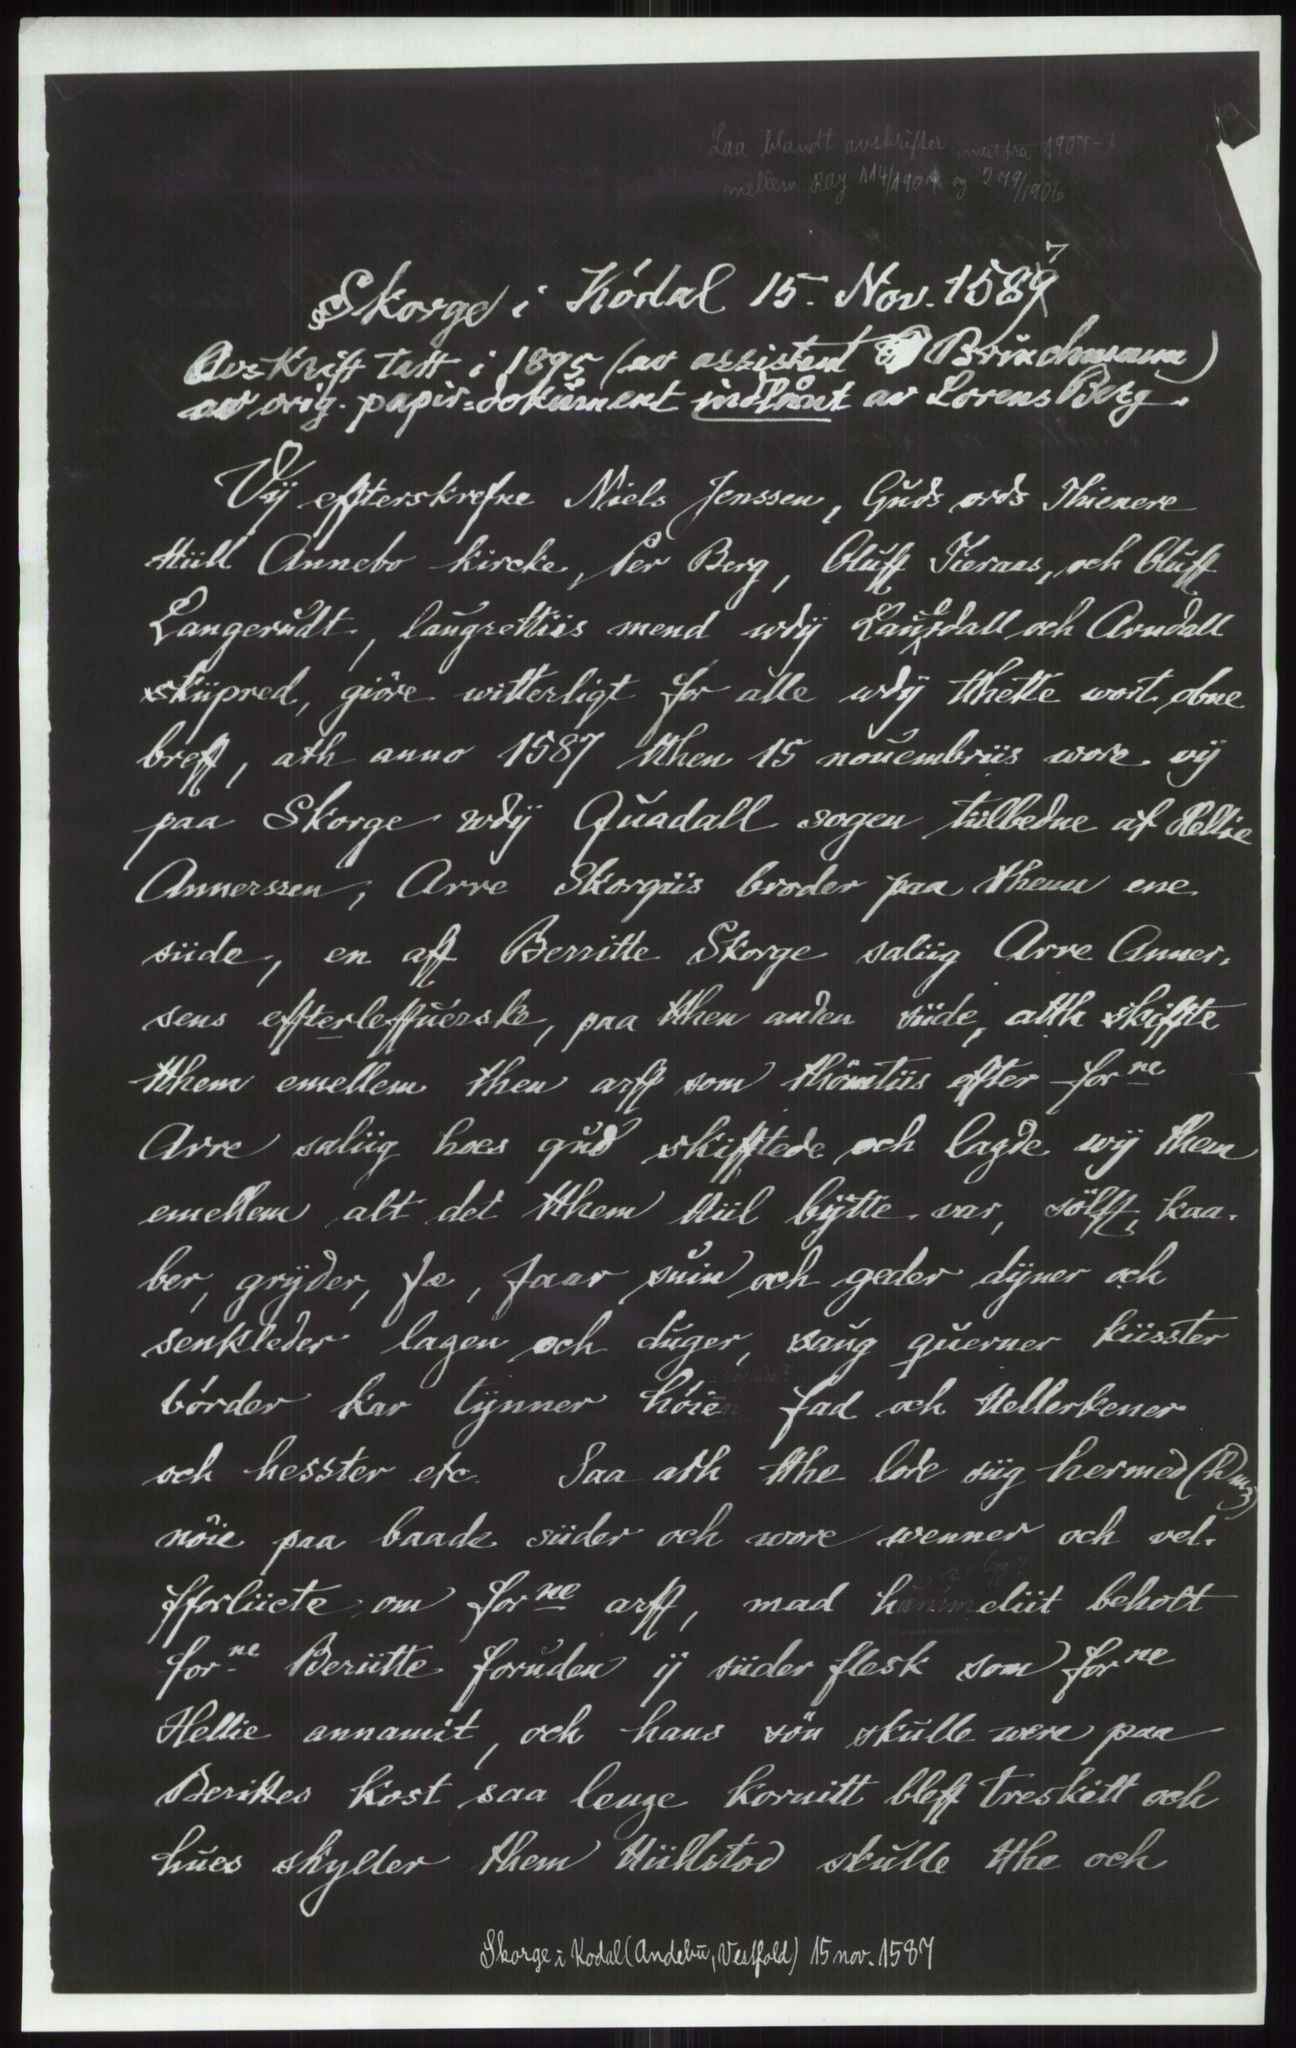 Laa blandt avskrifter mest fra 1904-
mellem RAJ 114/1904 og 279/1906
Skorge i Kódal 15. Nov. 1589 7
Avskrift tatt i 1895 (av assistent Brinchmann)
av orig. papir-dokument indlånt av Lorens Berg.
Vÿ effterskrefne Niels Jenssen, Guds ords Thienere
ttiill Annebo kircke, Per Berg, Oluff Tieraas, och Oluff
Langerudt, laugrettiis mend wdÿ Laurdall och Arndall
skiipred, giöre witterligt for alle wdÿ thette wort obne
breff, ath anno 1587 tthen 15 nouembriis wore vÿ
paa Skorge wdÿ Quadall sogen tiilbedne af Hellie
Annerssen, Arre Skorgiis broder paa thenn ene
siide, en aff Berritte Skorge saliig Arre Anner-
sens effterleffuerske, paa tthen anden siide, atth skiffte
tthem emellem then arff som thömtiis efter forne
Arre saliig hoes gud skifftede och lagde wÿ them
emellem alt det tthem ttiil bÿtte var, sölff, kaa-
ber, grÿder, fæ, faar suin och geder dÿner och
senkleder lagen och duger, saug querner kiisster
börder kar tÿnner höie fad och ttellerkener
och hesster etc. Saa ath tthe lode siig hermed
nöie paa baade siider och wore wenner och vel-
fforliicte om forne arff, mad h deliit beholt
forne Beriitte foruden ij siider flesk som forne
Hellie annamit, och hans sön skulle were paa
Berittes kost saa lenge kornitt bleff treskitt och
hues skyller them ttiillstod skulle tthe och
Skorge i Kodal (Andebu, Vestfold) 15 nov. 1587